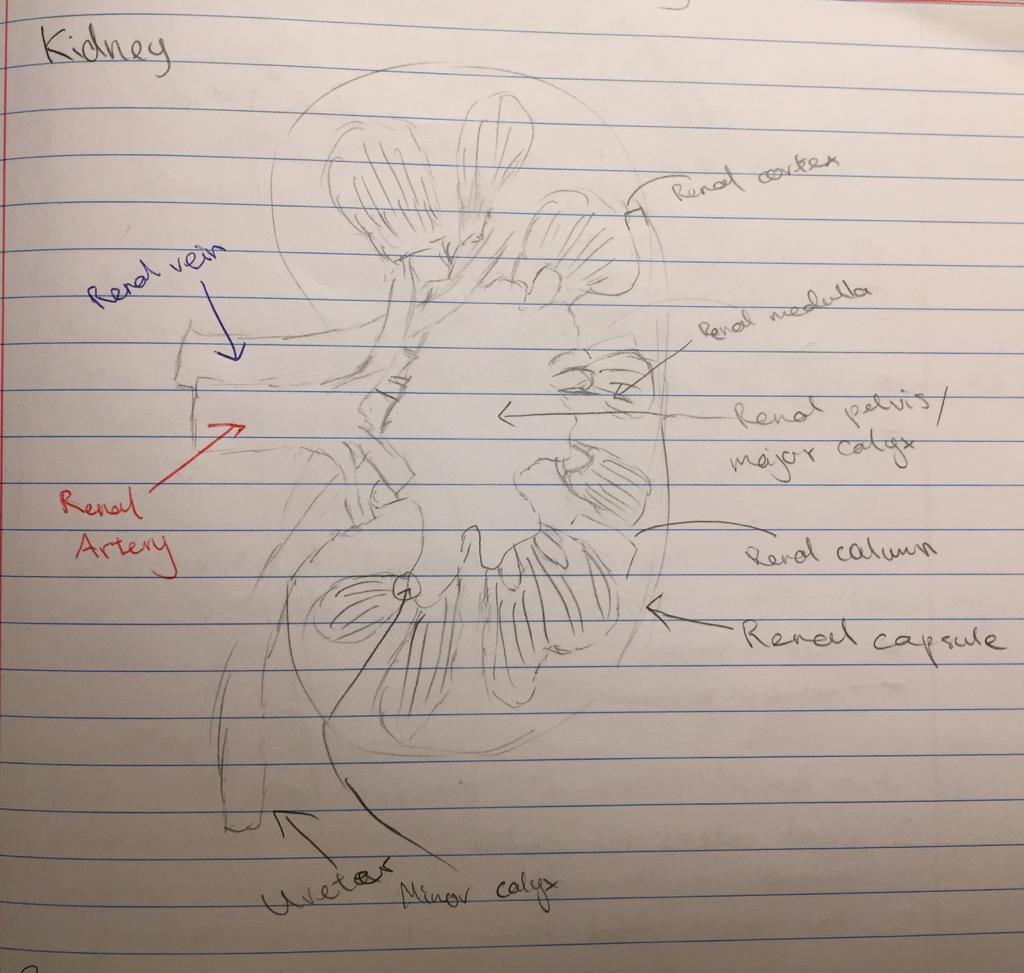 Kidney
Renal cortex
Renal vein
Renal medulla
Renal pelvis/
major calyx
Renal
Artery
Renal column
Renal capsule
Ureter
Minor calyx